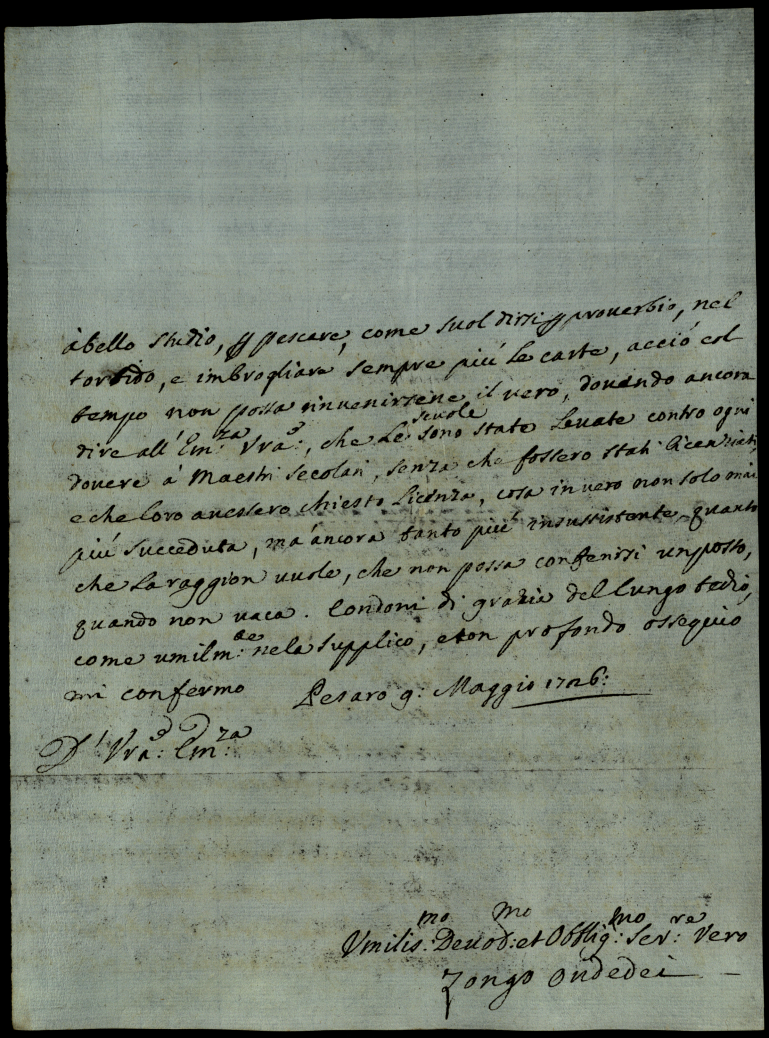 à bello studio, p pescare, come suol dirsi p proverbio, nel
torbido, e imbrogliare sempre più le carte, acciò col
tempo non possa rinvenirsene il vero, dovendo ancora
dire all' Em:za Vra:, che le scuole sono state levate contro ogni
dovere a' Maestri secolari, senza che fossero stati licenziati,
e che loro avessero chiesto licenza, cosa in vero non solo mai
più succeduta, ma ancora tanto più insussistente, quanto
che la raggion vuole, che non possa conferirsi un posto,
quando non vaca. Condoni di grazia del lungo tedio,
come umilm:ae nela supplico, e con profondo ossequio
mi confermo Pesaro 9: Maggio 1726:
D' Vra: Em:za
Umilis:mo Devod:mo et Obblig:mo Ser:re Vero
Zongo Ondedei